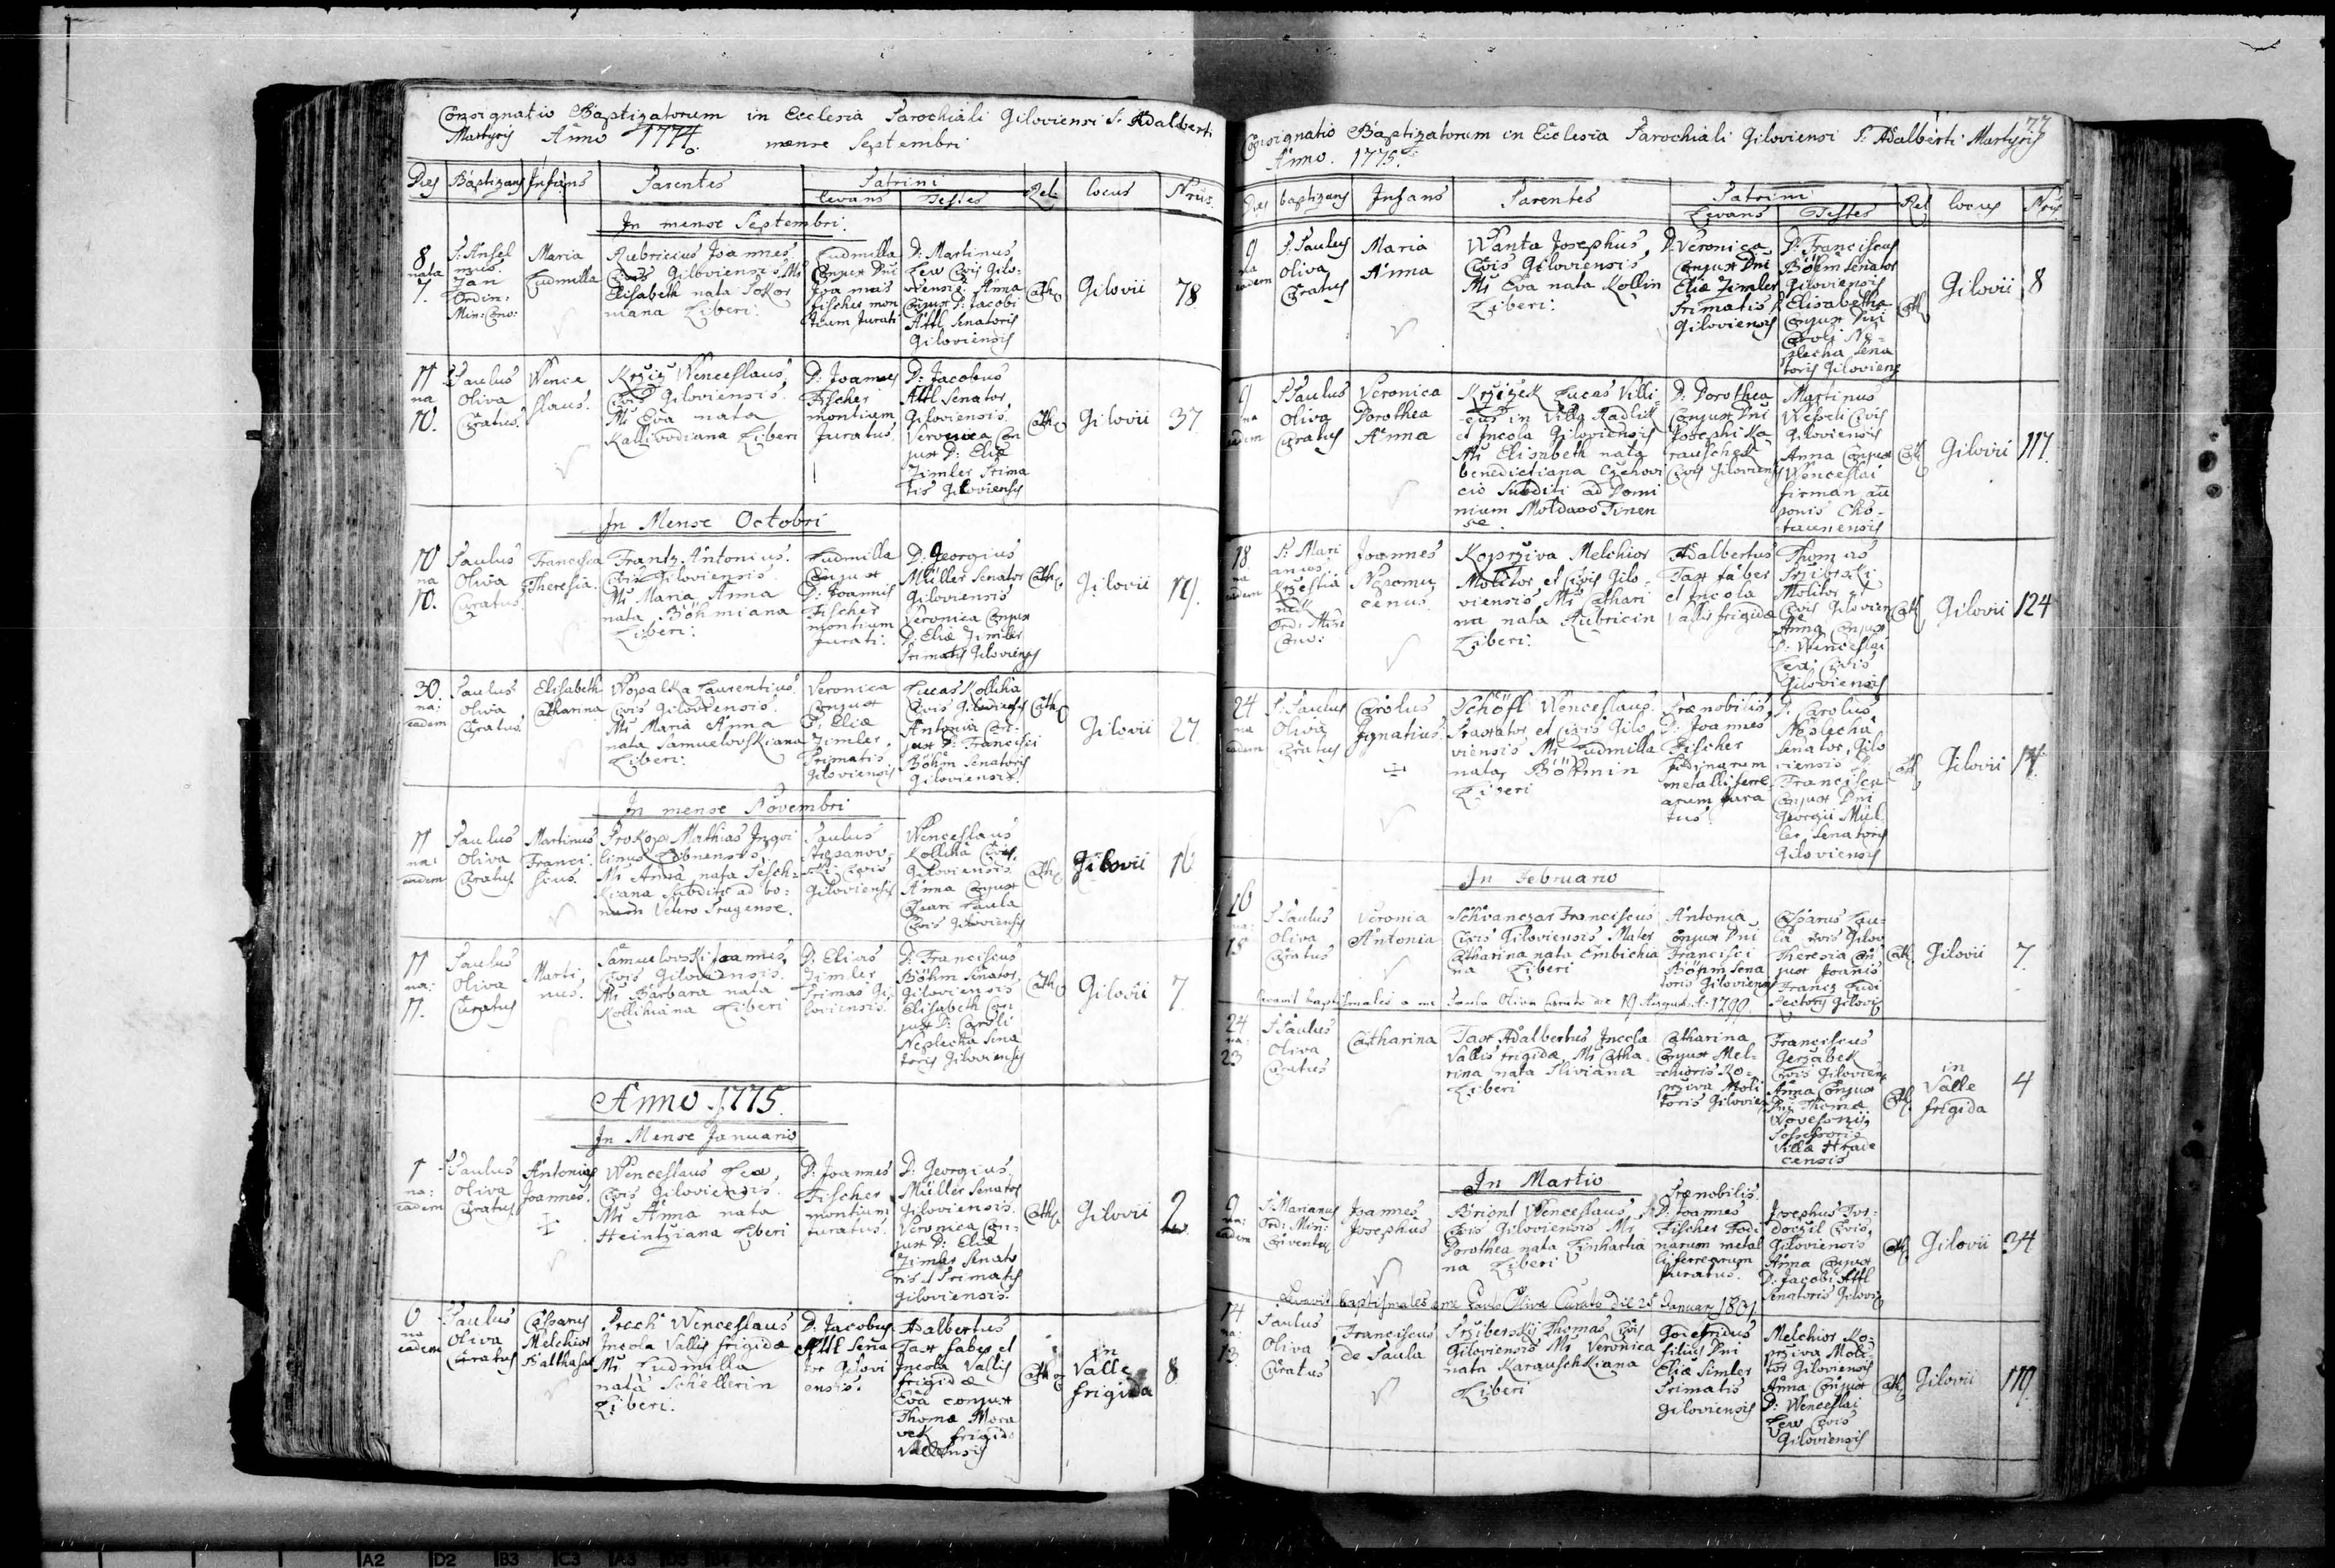 Consignatio Baptizatorum in Ecclesia Parochiali Giloviensi S: Adalberti
Martyris Anno 1774. mense Septembri
Dies Baptizans Infans Parentes Patrini Rel: locus Nrus.
levans Testes
In mense Septembri.
8
nata
7.
P: Ansel
mus.
Jan
Ordin:
Min: Conv:
Maria
Ludmilla
Rubricius Joannes
Civis Giloviensis. Mr
Elisabeth nata Sokor
niana Liberi.
Ludmilla
Conjux Dni
Joannis
Fischer mon
tium Jurati
D: Martinus
Lew Civis Gilo:
viensis. Anna
Conjux D: Jacobi
Attl Senatoris
Giloviensis
Cath
Gilovii
78
11
na
10.
P Paulus
Oliva
Curatus.
Wence
slaus.
Krziz Wenceslaus
Civis Giloviensis.
Mr Eva nata
Kallivodiana Liberi
D: Joannes
Fischer
montium
Juratus.
D: Jacobus
Attl Senator
Giloviensis.
Veronica Con
jux D: Eliæ
Zimler Prima
tis Giloviensis
Cath
Gilovii
37
In Mense Octobri
10
na
10.
Paulus
Oliva
Curatus.
Francisca
Theresia.
Frantz Antonius.
Civis Giloviensis.
Mr Maria Anna
nata Böhmiana
Liberi:
Ludmilla
Conjux
D: Joannis
Fischer
montium
Jurati:
D: Georgius
Müller Senator
Giloviensis
Veronica Conjux
D: Eliæ Zimler
Primatis Giloviensis
Cath
Gilovii
30.
na:
eadem
Paulus
Oliva
Curatus.
Elisabeth
Catharina
Wopalka Laurentius.
Civis Giloviensis.
Mr Maria Anna
nata Samuelowskiana
Liberi:
Veronica
Conjux
D: Eliæ
Zimler
Primatis
Giloviensis
Lucas Kolliha
Civis Giloviensis
Antonia Con:
jux D: Francisci
Böhm Senatoris
Giloviensis.
Cath
Gilovii
27
In mense Novembri
11
na:
eadem
Paulus
Oliva
Curatus
Martinus
Franci:
scus.
Prokop Mathias Inqvi
linus
Mr Anna nata Pesch:
kiana Subditi ad bo:
num Vetero Pragense.
Paulus
Stiepanov
ski Civis
Giloviensis
Wenceslaus
Kolliha Civis
Giloviensis
Anna Conjux
Caspari Paula
Civis Giloviensis
Cath
Gilovii
16
11
na:
11.
Paulus
Oliva
Curatus
Marti
nus.
Samuelovski Joannes
Civis Giloviensis.
Mr Barbara nata
Kollihiana Liberi
D: Elias
Zimler
Primas Gi
loviensis.
D: Franciscus
Böhm Senator
Giloviensis
Elisabeth Con
jux D: Caroli
Neplecha Sena
toris Giloviensis
Cath
Gilovii
7
Anno 1775.
In Mense Januario
1
na:
eadem
P Paulus
Oliva
Curatus
Antonius
Joannes.
Wenceslaus Lew
Civis Giloviensis.
Mr Anna nata
Heintziana Liberi
D: Joannes
Fischer
montium
Juratus.
D: Georgius
Müller Senator
Giloviensis.
Veronica Con:
jux D: Eliæ
Zimler Senato
ris et Primatis
Giloviensis.
Cath
Gilovii
2
6
na
eadem
Paulus
Oliva
Curatus
Casparus
Melchior
Balthasar
Prech Wenceslaus
Incola Vallis frigidæ
Mr Ludmilla
nata Schellerin
Liberi.
D: Jacobus
Attl Sena
tor Gilovi
ensis.
Adalbertus
Tax faber et
Incola Vallis
frigidæ
Eva conjux
Thomæ Mora
vek frigido
Vallensis
Cath
in
Valle
frigida
8
77
Consignatio Baptizatorum in Ecclesia Parochiali Giloviensi S: Adalberti Martyris
Anno. 1775.
Dies baptizans Infans Parentes Patrini Rel locus Nrus
Levans Testes
9
na
eadem
P: Paulus
Oliva
Curatus
Maria
Anna
Wanta Josephus,
Civis Giloviensis,
Mr Eva nata Kollin
Liberi:
D: Veronica
Conjux Dni
Eliæ Zimler
Primatis
Giloviensis
D: Franciscus
Böhm Senator
Giloviensis
Elisabetha
Conjux Dni
Caroli Ne-
plecha Sena
toris Giloviens
Cath
Gilovii
8
9
na
eadem
P Paulus
Oliva
Curatus
Veronica
Dorothea
Anna
Krzizek Lucas Villi
cus in Villa Radlik
et Incola Giloviensis
Mr Elisabeth nata
benedictiana Czehovi
cio Subditi ad Domi
nium Moldavo Tinen
se.
D: Dorothea
Conjux Dni
Josephi Ka
rauschek
Civis Giloviens
Martinus
Wesseli Civis
Giloviensis
Anna Conjux
Wenceslai
firman cau
ponis Cho-
taunensis
Cath
Gilovii
117
18
na
eadem
P: Mari
anus
Ord: Min:
Conv:
Joannes
Nepomu
cenus.
Koprziva Melchior
Molitor et Civis Gilo-
viensis Mr Cathari
na nata Rubricin
Liberi:
Adalbertus
Tax faber
et Incola
Vallis frigidæ
Thomas
Przibrski
Molitor et
Civis Giloviens
Anna Conjux
D: Wenceslai
Lew Civis
Giloviensis
Cath
Gilovii
124
24
na
eadem
P. Paulus
Oliva
Curatus
Carolus
Ignatius.
Schöfl Wenceslaus
Civis Gilo
viensis Mr Ludmilla
nata Böhmin
Liberi
Prænobilis
D: Joannes
Fischer
fodinarum
metalliferre
arum jura
tus
D: Carolus
Neplecha
Senator Gilo
viensis
Francisca
Conjux Dni
Georgii Mül-
ler Senatoris
Giloviensis
Cath
Gilovii
In Februario
16
na:
15
P Paulus
Oliva
Curatus
Veronia
Antonia
Schwanczar Franciscus
Civis Giloviensis Mater
Catharina nata Embichia
na Liberi
Antonia
Conjux Dni
Francisci
Böhm Sena
toris Giloviens
Casparus Pau-
la Civis Gilov
Theresia Con
jux Joannis
Frantz Ludi
Rectoris Gilov
Cath
Gilovii
7.
Levavit baptismales a me Paulo Oliva Curato die 19 August: A: 1790.
24
na:
23
P Paulus
Oliva
Curatus
Catharina
Tax Adalbertus Incola
Vallis frigidæ, Mr Catha
rina nata Sliviana
Liberi
Catharina
Conjux Mel-
chioris Ko-
prziva Moli
toris Giloviens
Franciscus
Jerzabek
Civis Giloviens
Anna Conjux
Dni Thomæ
Possessoris
Villæ Hrade
censis
Cath
in
Valle
frigida
4
In Martio
9
na:
eadem
P: Marianus
Ord: Min:
Conventus
Joannes
Josephus
Briont Wenceslaus
Civis Giloviensis Mr
Dorothea nata Linhartia
na Liberi
Prænobilis
D: Joannes
Fischer Fodi
narum metal
liferrearum
Juratus.
Josephus
Civis
Giloviensis
Anna Conjux
D: Jacobi Attl
Senatoris Gilov
Cath
Gilovii
34
Levavit baptismales a me Paulo Oliva Curato die 25 Januarii 1801
14
na:
13.
Paulus
Oliva
Curatus
Franciscus
de Paula
Przibersky Thomas Civis
Giloviensis Mr Veronica
nata Karauschkiana
Liberi
Godefridus
filius Dni
Eliæ Simler
Primatis
Giloviensis
Melchior Ko-
prziva Moli-
tor Giloviensis
Anna Conjux
D: Wenceslai
Lew Civis
Giloviensis
Cath
Gilovii
119
A2 D2 B3 C3 A3